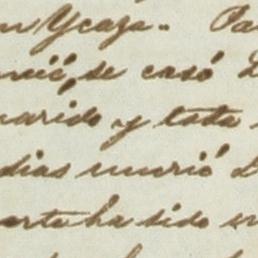 n Ycaza. Pa
nció, se casó D
marido y toda
dias murió D
arte ha sido m